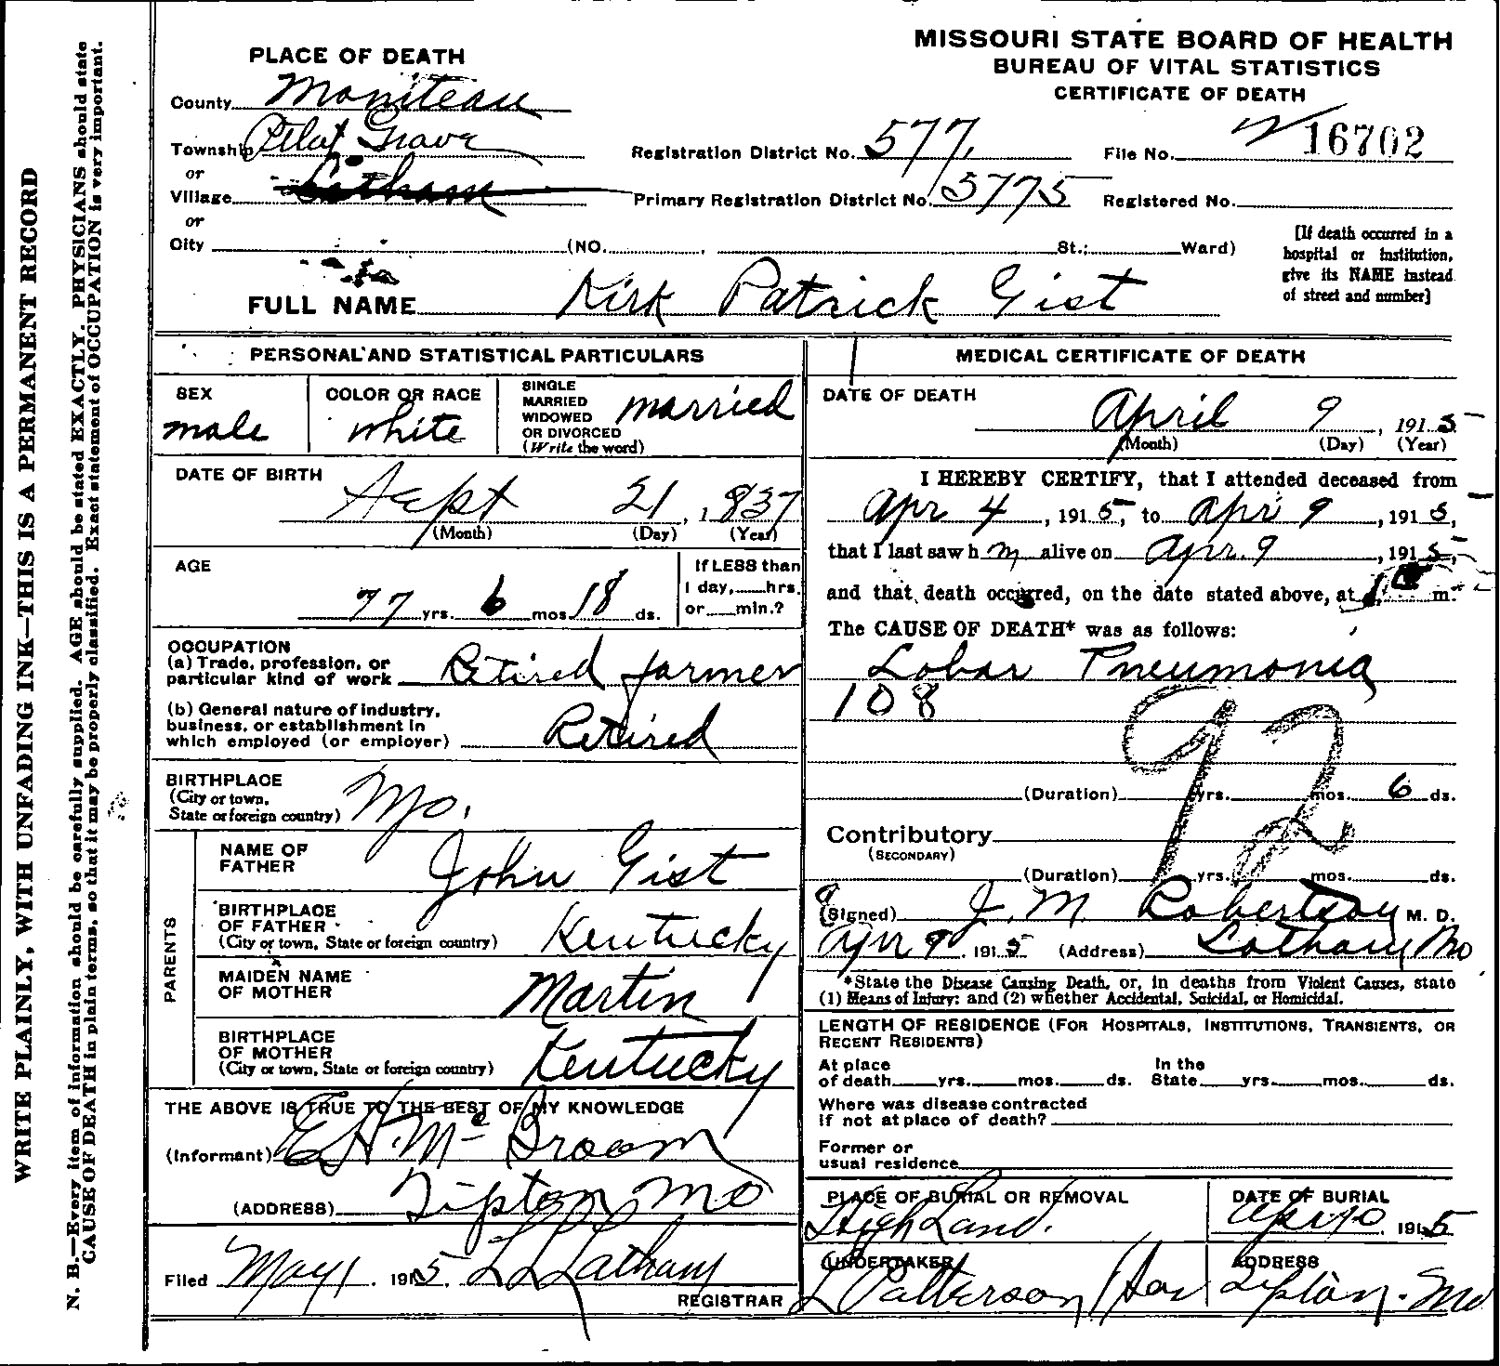 WRITE PLAINLY, WITH UNFADING INK—THIS IS A PERMANENT RECORD
N. B.—Every item of information should be carefully supplied. AGE should be stated EXACTLY. PHYSICIANS should state
CAUSE OF DEATH in plain terms, so that it may be properly classified. Exact statement of OCCUPATION is very important.
MISSOURI STATE BOARD OF HEALTH
BUREAU OF VITAL STATISTICS
CERTIFICATE OF DEATH
PLACE OF DEATH
County Moniteau
Township Pilot Grove
or
Village Latham
or
City (NO. , St.; Ward)
Registration District No. 577,
File No. 16702
Primary Registration District No. 5775
Registered No.
[If death occurred in a
hospital or institution,
give its NAME instead
of street and number]
FULL NAME Kirk Patrick Gist
PERSONAL AND STATISTICAL PARTICULARS
SEX
male
COLOR OR RACE
white
SINGLE
MARRIED
WIDOWED
OR DIVORCED
(Write the word)
married
DATE OF BIRTH
Sept 21, 1837
(Month) (Day) (Year)
AGE
77 yrs. 6 mos 18 ds.
If LESS than
1 day, hrs.
or min.?
OCCUPATION
(a) Trade, profession, or
particular kind of work Retired farmer
(b) General nature of industry,
business, or establishment in
which employed (or employer) Retired
BIRTHPLACE
(City or town,
State or foreign country) Mo.
PARENTS
NAME OF
FATHER John Gist
BIRTHPLACE
OF FATHER
(City or town, State or foreign country) Kentucky
MAIDEN NAME
OF MOTHER Martin
BIRTHPLACE
OF MOTHER
(City or town, State or foreign country) Kentucky
THE ABOVE IS TRUE TO THE BEST OF MY KNOWLEDGE
(Informant) E H. Mc Broom
(ADDRESS) Tipton Mo
Filed May 1, 1915, L L Latham
REGISTRAR
MEDICAL CERTIFICATE OF DEATH
DATE OF DEATH
April 9, 1915
(Month) (Day) (Year)
I HEREBY CERTIFY, that I attended deceased from
Apr 4, 1915, to Apr 9, 1915,
that I last saw h m alive on Apr. 9, 1915,
and that death occurred, on the date stated above, at m.
The CAUSE OF DEATH* was as follows:
Lobar Pneumonia
108
92
(Duration) yrs. mos. 6 ds.
Contributory
(SECONDARY)
(Duration) yrs. mos. ds.
(Signed) J. M Robertson M. D.
Apr 9, 1915 (Address) Latham Mo
*State the Disease Causing Death, or, in deaths from Violent Causes, state
(1) Means of Injury; and (2) whether Accidental, Suicidal, or Homicidal.
LENGTH OF RESIDENCE (FOR HOSPITALS, INSTITUTIONS, TRANSIENTS, OR
RECENT RESIDENTS)
At place In the
of death yrs. mos. ds. State yrs. mos. ds.
Where was disease contracted
if not at place of death?
Former or
usual residence
PLACE OF BURIAL OR REMOVAL
High Land.
DATE OF BURIAL
Apr 10 1915
UNDERTAKER
L Patterson
ADDRESS
Tipton. Mo